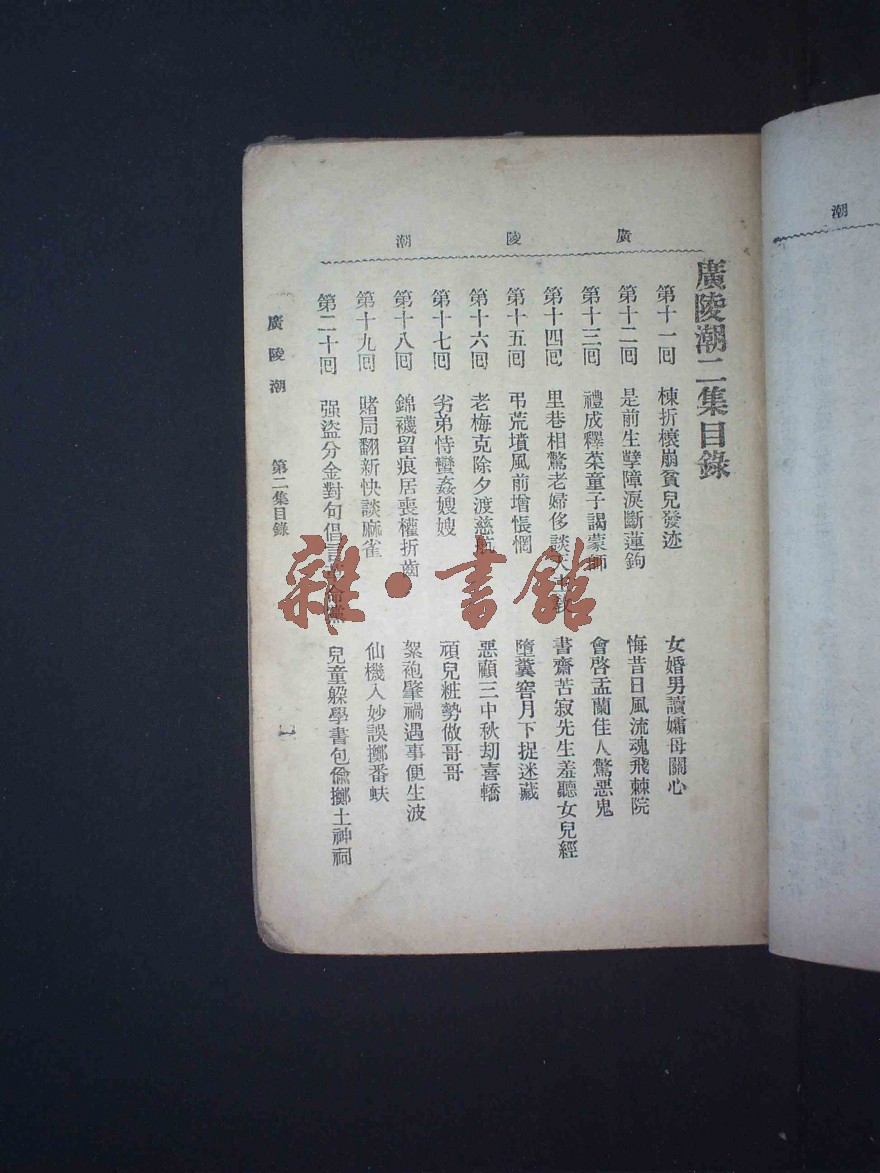 潮
廣陵潮
廣陵潮二集目錄
第十一回 棟折榱崩貧兒發迹 女婚男讀孀母關心
第十二回 是前生孽障淚斷蓮鉤 悔昔日風流魂飛棘院
第十三回 禮成釋菜童子謁蒙師 會啓盂蘭佳人驚惡鬼
第十四回 里巷相驚老婦侈談天主教 書齋苦寂先生羞聽女兒經
第十五回 弔荒墳風前增悵惘 墮糞窖月下捉迷藏
第十六回 老梅克除夕渡慈航 惡顧三中秋刧喜轎
第十七回 劣弟恃蠻姦嫂嫂 頑兒粧勢做哥哥
第十八回 錦襪留痕居喪權折齒 絮袍肇禍遇事便生波
第十九回 賭局翻新快談麻雀 仙機入妙誤擲番蚨
第二十回 强盜分金對句倡言 兒童躲學書包偷擲土神祠
廣陵潮 第二集目錄 一
雜·書館